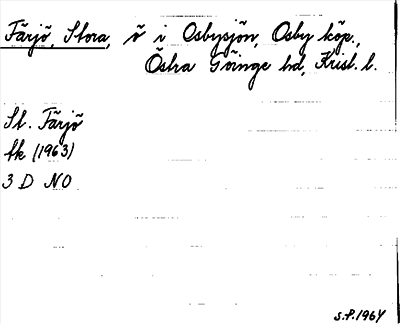 Färjö, Stora, ö i Osbysjön, Osby köp.,
Östra Göinge hd, Krist. l.
St. Färjö
Ek (1963)
3 D NO
S.P. 1964